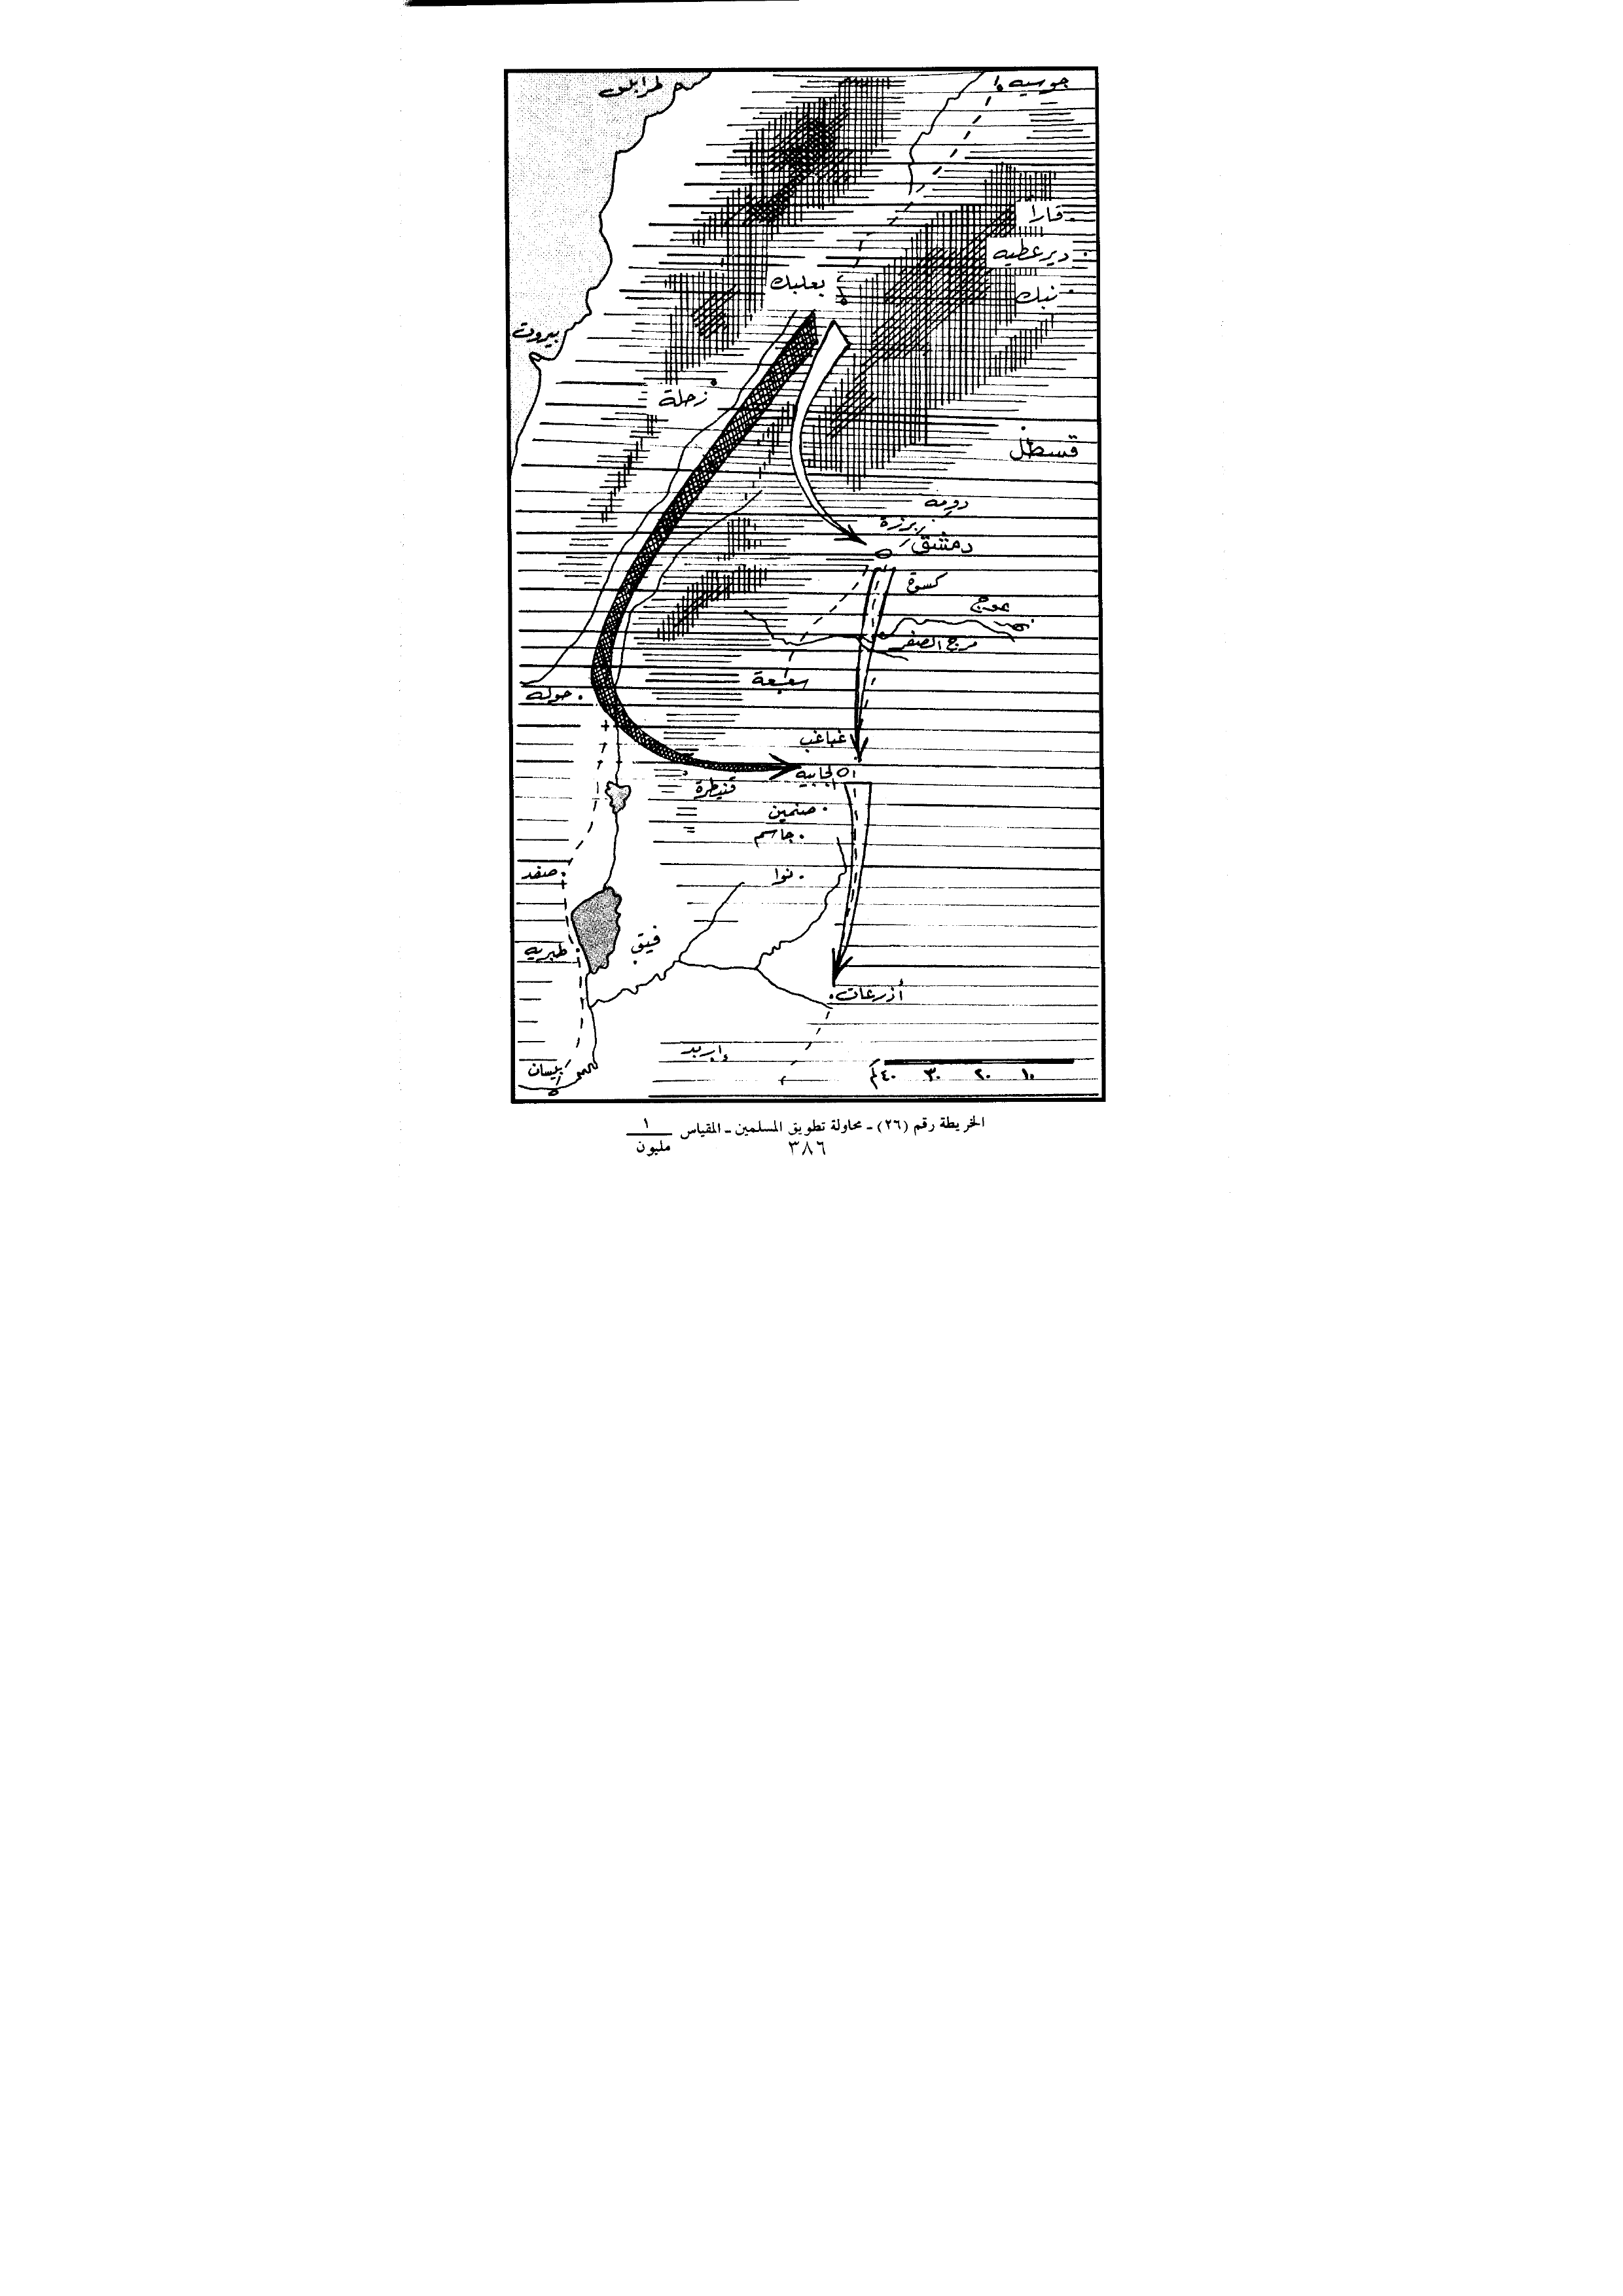 طرابلس
جوسيه
قارا
ديرعطيه
نبك
بعلبك
بيروت
زحلة
قسطل
دومه
برزة
دمشق
كسوة
نهر
عوج
مرج الصفر
سعسعة
حوله
غباغب
الجابيه
قنيطرة
صنمين
جاسم
نوا
صفد
فيق
طبريه
أذرعات
إربد
بيسان
١٠ ٢٠ ٣٠ ٤٠كم
الخريطة رقم (٢٦) ـ محاولة تطويق المسلمين ـ المقياس ١
مليون
٣٨٦